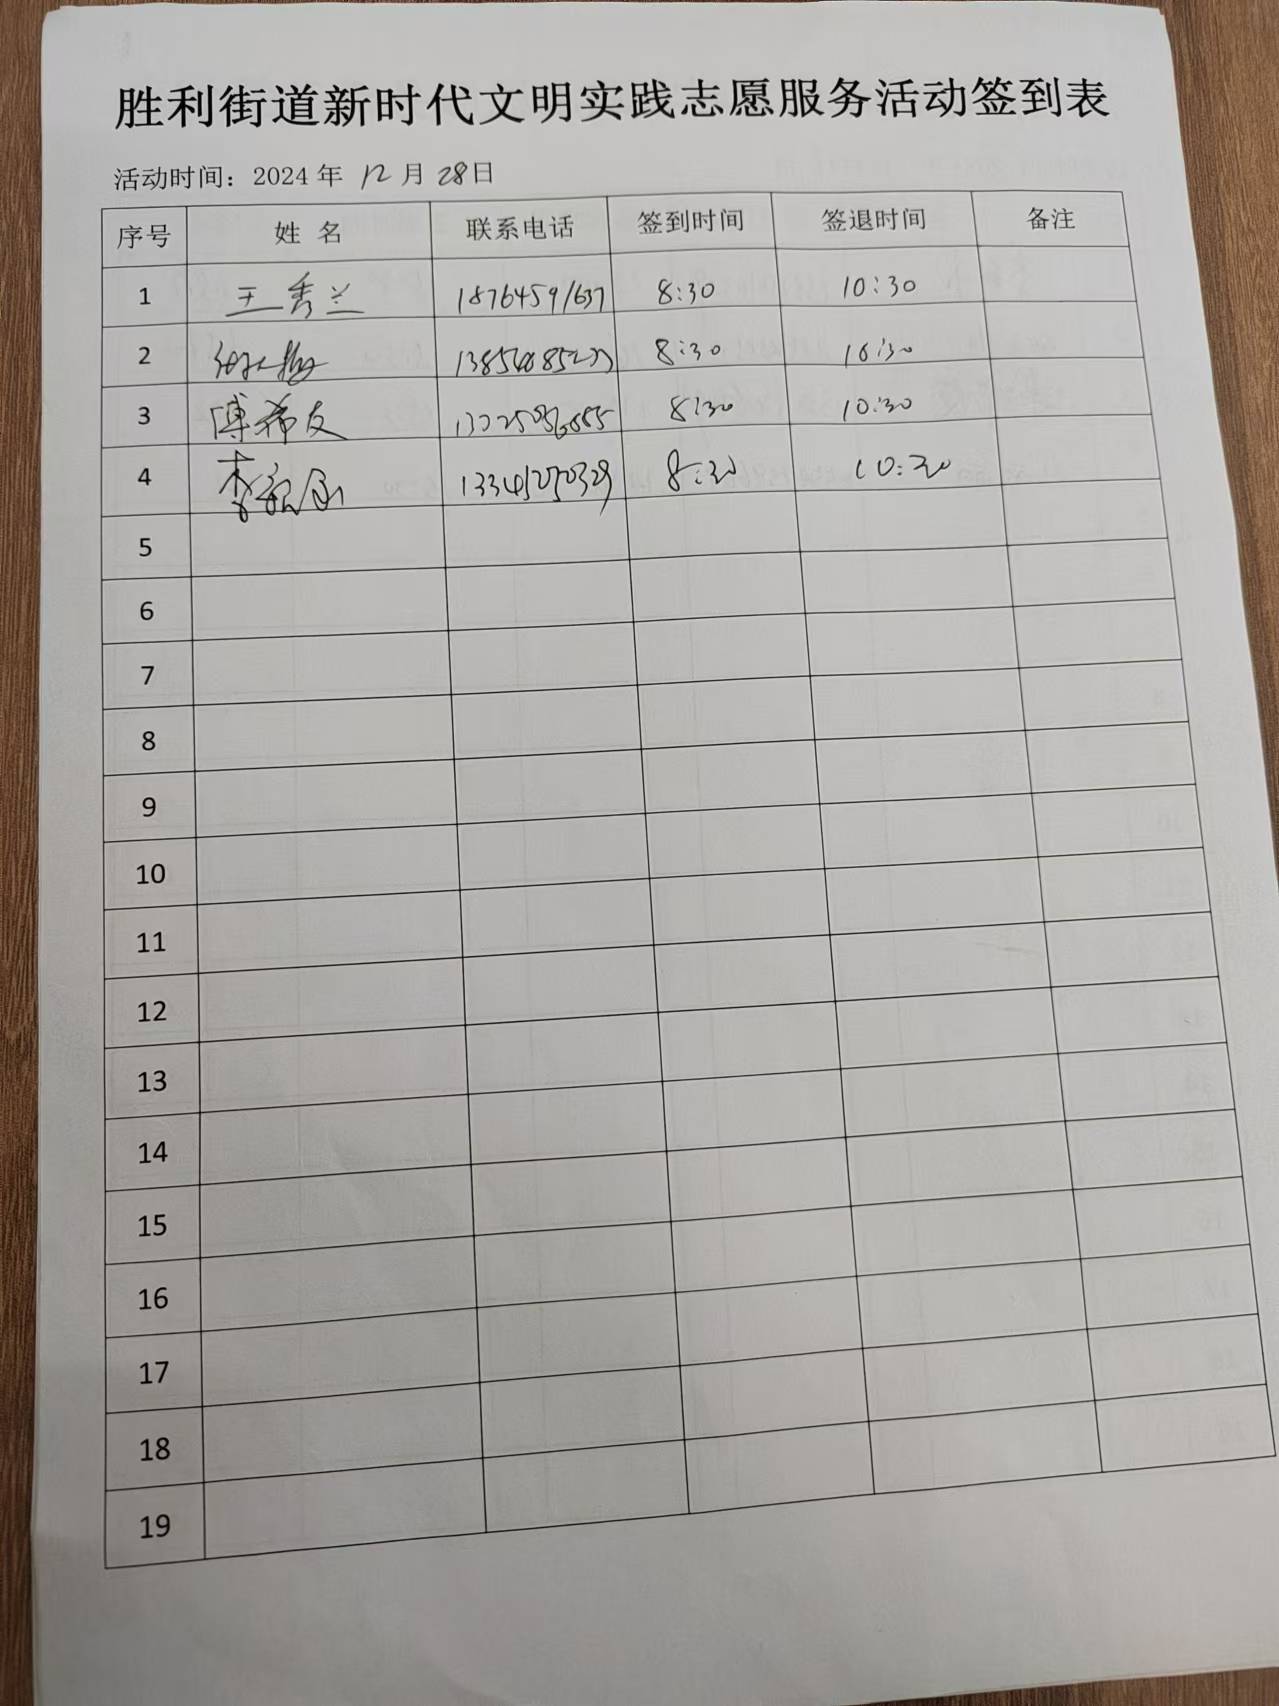 胜利街道新时代文明实践志愿服务活动签到表
活动时间：2024 年 12 月 28日
序号 姓 名 联系电话 签到时间 签退时间 备注
1 王秀兰 18764591637 8:30 10:30
2 8:30 10:30
3 傅希友 8:30 10:30
4 李 13345250329 8:30 10:30
5
6
7
8
9
10
11
12
13
14
15
16
17
18
19